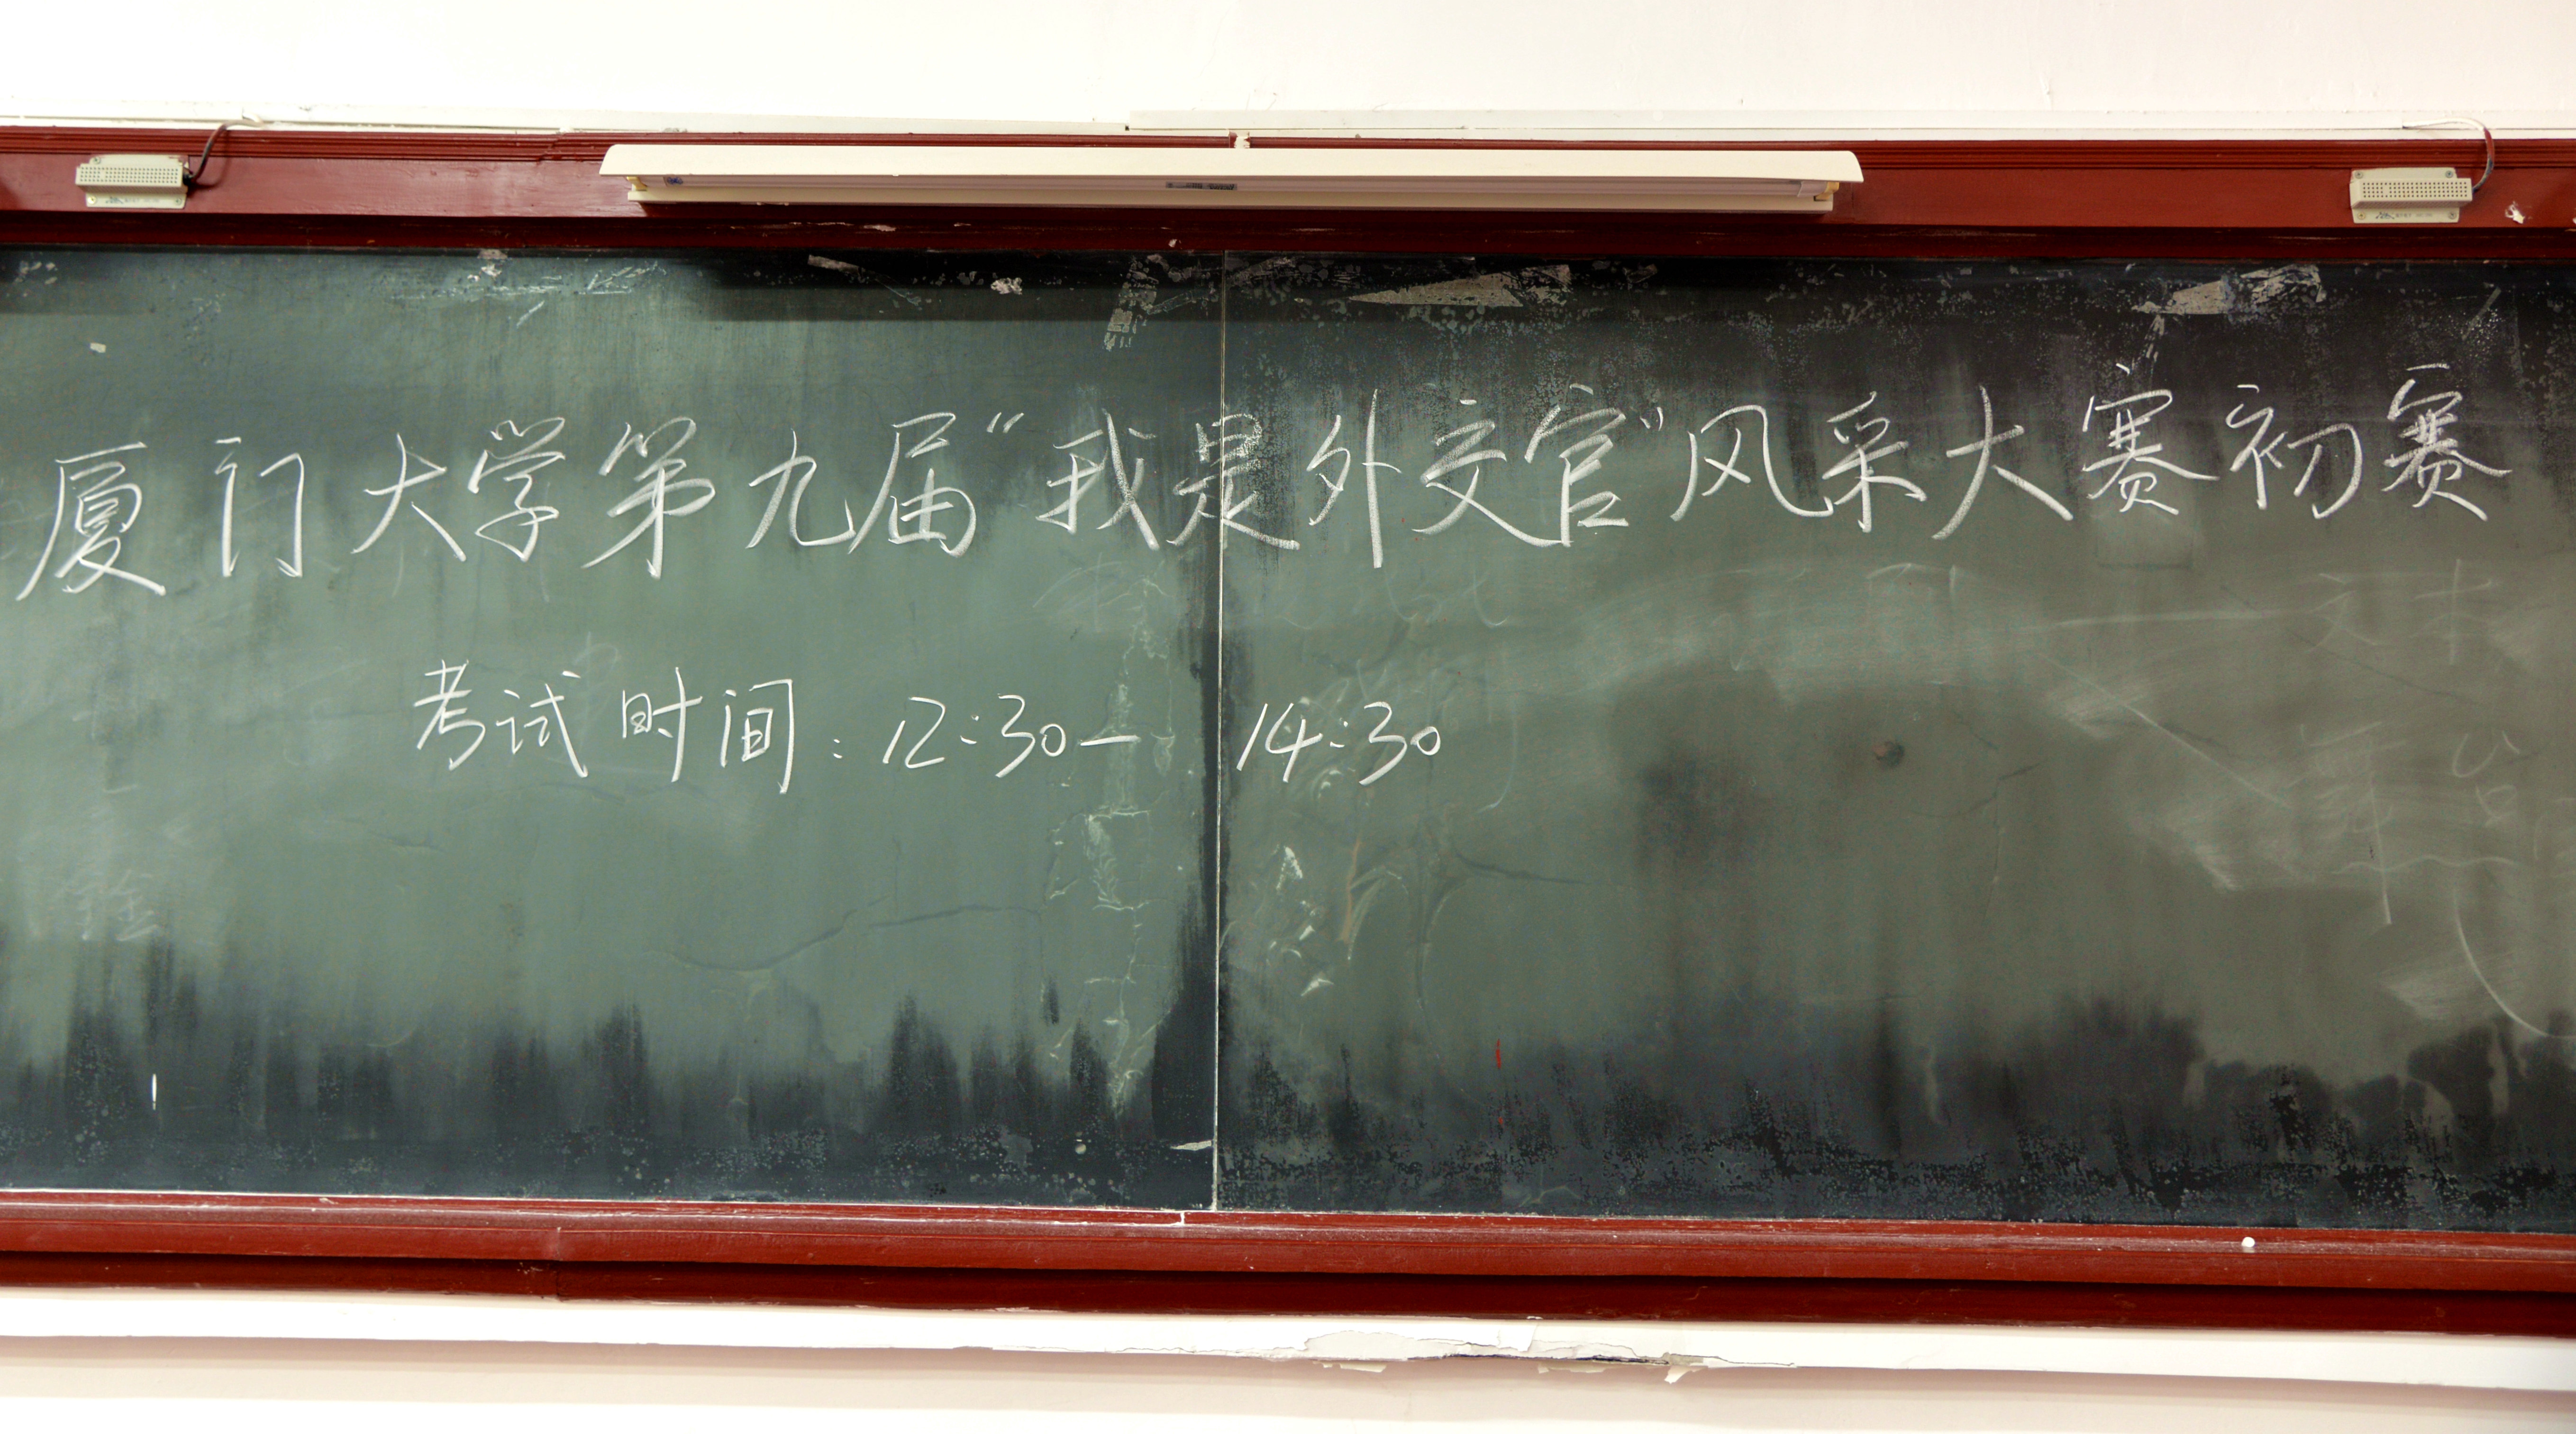 厦门大学第九届“我是外交官”风采大赛初赛
考试时间:12:30—14:30